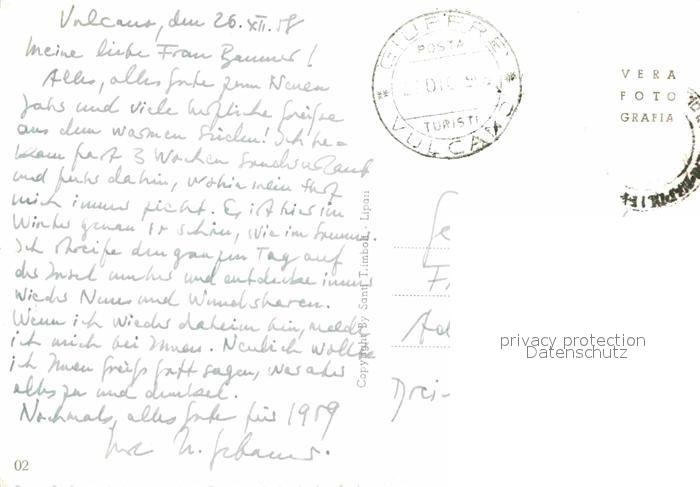 Vulcano, den 26.XII.58
Meine liebe Frau Banmer!
Alles, alles Gute zum Neuen
Jahr und viele herzliche Grüsse
aus dem warmen Süden! Ich be=
kam fast 3 Wochen Sonderurlaub
und fuhr dahin, wohin mein
mich immer zieht. Es ist hier im
Winter genau so schön, wie im Sommer.
Ich streife den ganzen Tag auf
der Insel umher und entdecke immer
wieder Neues und Wunderbares.
Wenn ich wieder daheim bin, melde
ich mich bei Ihnen. Neulich wollte
ich Ihnen grüss Gott sagen, war aber
alles zu und dunkel.
Nochmals, alles Gute für 1959
Ihre
02
Copyright By Santi T.imboli - Lipari
GIUFFRE
POSTA
DIC
TURISTI
VULCANO
VERA
FOTO
GRAFIA
Drei-
privacy protection
Datenschutz